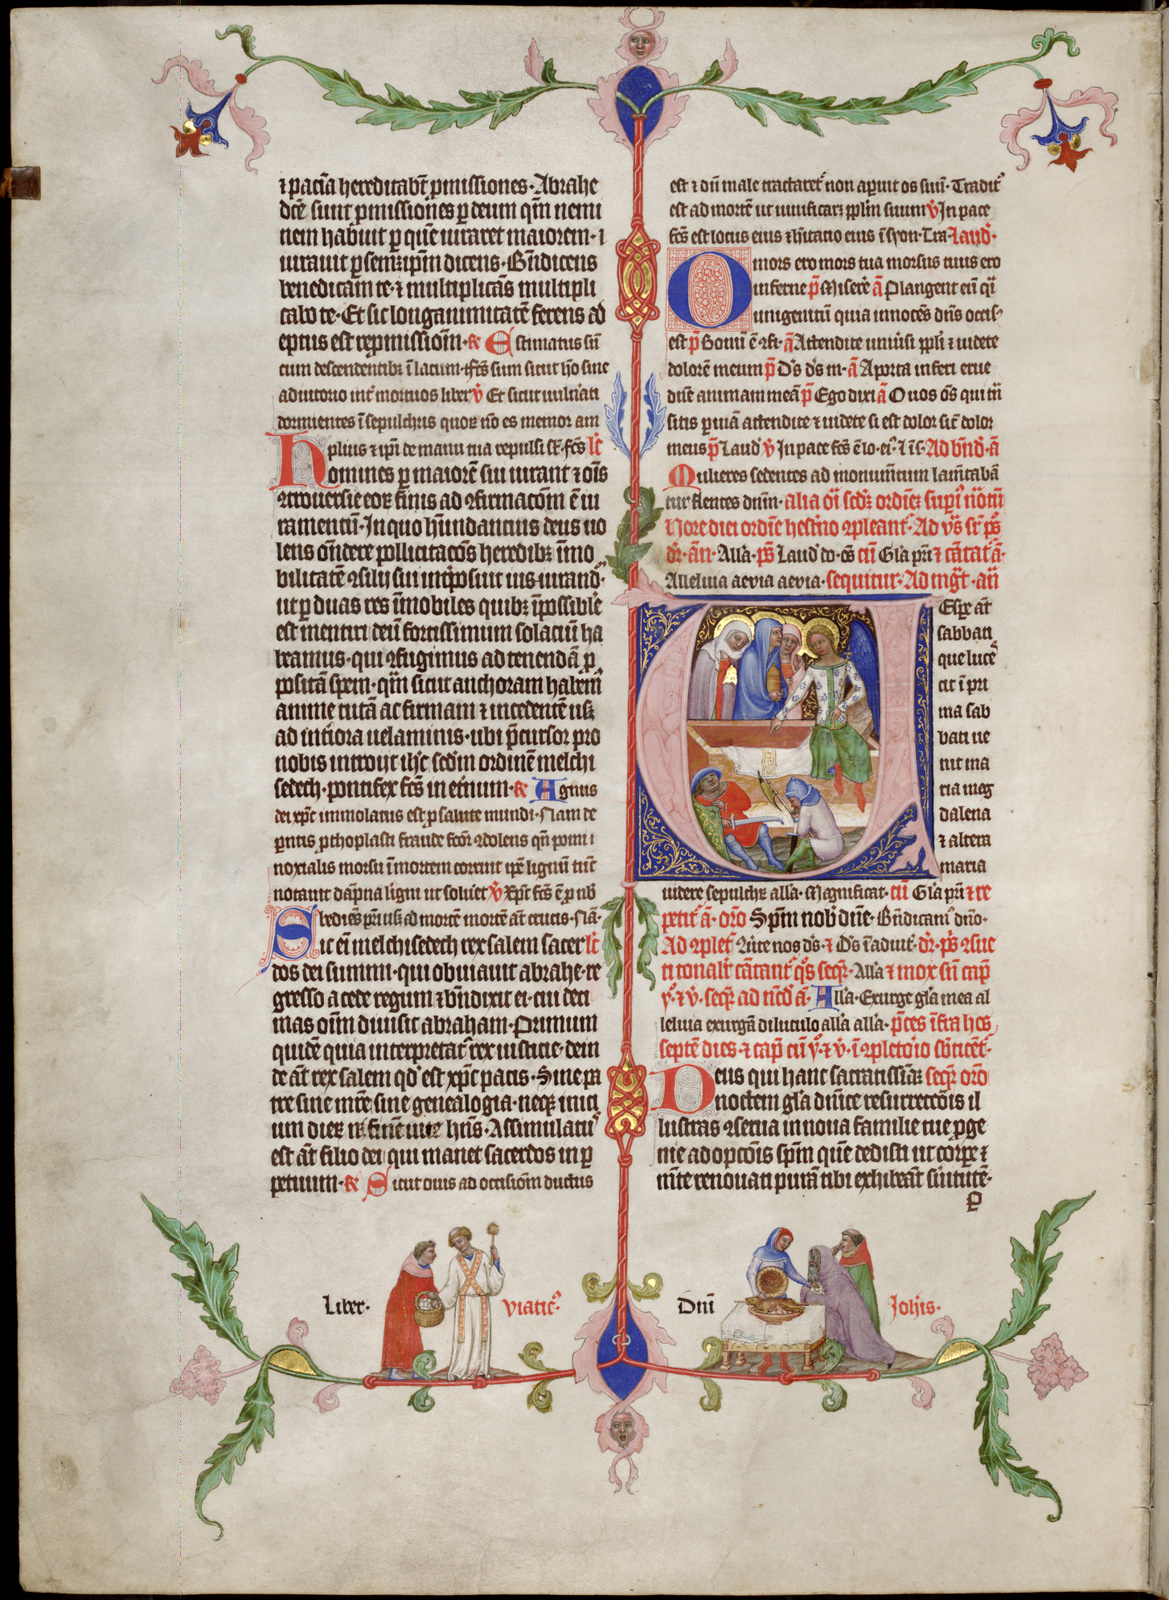 ⁊ paciā hereditabt̄ ꝓmissiones · Abrahe
dcē sunt ꝓmissiōes ꝑ deum qm̄ nemi
nem habuit ꝑ quē iuraret maiorem · i
iurauit ꝑ semꝫ ip̄m dicens · Bn̄dicens
benedicam te · ⁊ multiplicās multipli
cabo te · Et sic longanimitatē ferens ad
eptus est repmissiōm · R Estimatus sū
cum descendentibꝫ ī lacum · fc̄s sum sicut hō sine
adiutorio int̄ mortuos liber v̄ Et sicut uulnati
dormientes ī sepulchris quoꝝ nō es memor am
plius ⁊ ip̄i de manu tua repulsi st̄ · fc̄s lc̄
Homines ꝑ maiorē sui iurant ⁊ oīs
ꝯtrouersie eoꝝ finis ad ꝯfirmacōm ē iu
ramentū · In quo habundantius deus uo
lens on̄dere pollicitacōis heredibꝫ īmo
bilitatē ꝯsilij sui int̄posuit ius iurand
ut ꝑ duas res īmobiles quibꝫ īpossibile
est mentiri deū fortissimum solaciū ha
beamus · qui ꝯfugimus ad tenendā ꝓ
positā spem · qm̄ sicut anchoram habem
anime tutā ac firmam ⁊ incedentē usꝫ
ad int̄iora uelaminis · ubi p̄cursor pro
nobis introijt ihc̄ scdm̄ ordinē melchi
sedech · pontifex fc̄s in et̄num · R Agnus
dei xpc̄ immolatus est ꝓ salute mundi · Nam de
ꝑntis ꝓthoplasti fraude fcōr ꝯdolens qn̄ pomi
noxialis morsu ī mortem corruit ip̄e lignū tūc
notauit dāpna ligni ut solueret v̄ Xpc̄ fc̄s ē ꝓ nob
obediēs pr̄i usꝫ ad mortē mortē at̄ crucis · Nā
Sic eī melchisedech rex salem sacer lc̄
dos dei summi · qui obuiauit abrahe re
gresso a cede regum ⁊ bn̄dixit ei · cui deci
mas oīm diuisit abraham · Primum
quidē quia interpretat̄ rex iusticie · dein
de at̄ rex salem qd̄ est xpc̄ pacis · Sine pa
tre sine mr̄e sine genealogia · neqꝫ inici
um dieꝝ neqꝫ finē uite hn̄s · Assimulatus
est at̄ filio dei qui manet sacerdos in ꝑ
petuum · R Sicut ouis ad occisiōm ductus
est ⁊ dū male tractaret̄ non aperuit os suū · Tradit
est ad mortē ut uiuificaret ppl̄m suum v̄ In pace
fc̄s est locus eius ⁊ hītatio eius ī syon · Tra · Laud
O mors ero mors tua morsus tuus ero
inferne p̄s Miserē ā Plangent eū q̄si
unigenitū quia innocēs dn̄s occis
est p̄s Bonū ē ꝯfi · ā Attendite uniūsi ppl̄i ⁊ uidete
dolorē meum p̄s Ds̄ ds̄ m · ā A porta inferi erue
dn̄e animam meā p̄s Ego dixi ā O uos oēs qui tn̄
sitis ꝑ uiā attendite ⁊ uidete si est dolor sic̄ dolor
meus p̄s Laud v̄ In pace fc̄s ē lo · ei · ⁊ ī s · Ad bn̄d · ā
Mulieres sedentes ad monumētum lamētabā
tur flentes dnm̄ · alia oīa scdꝫ ordinē supī notm̄
hore diei ordinē hest̄no ꝯpleant · Ad vs̄ sr̄ ps̄
dr̄ · an̄ · Alla · ps̄ Laud do · oēs cū Gla pr̄i ⁊ cātat̄ ā
Alleluia aevia aevia · sequitur · Ad mgt̄ · an̄
Vespe at̄
sabbati
que luce
cit ī pri
ma sab
bati ue
nit ma
ria mag
dalena
⁊ altera
maria
uidere sepulchꝝ alla · Magnificat · cū Gla pr̄i ⁊ re
petit̄ ā · oro Spm̄ nob dn̄e · Bn̄dicam dn̄o ·
Ad ꝯplet̄ ꝯūte nos ds̄ · ⁊ Ds̄ ī adiut · dr̄ · ps̄ ꝯsue
ti tonalit̄ cātant̄ qs̄ seqr̄ · Alla ⁊ mox sn̄ cap
y · ⁊ v̄ · seqr̄ ad nc̄d ā · Alla · Exurge gla mea al
leluia exurgā diluculo alla alla · p̄ces īfra hos
septē dies · ⁊ cap̄ cū y · ⁊ v̄ · ī ꝯpletorio obticēt ·
Deus qui hanc sacratissiā seqr̄ oro
noctem gla dn̄ice resurrectōis il
lustras ꝯserua in noua familie tue ꝓge
nie adopcōis spm̄ quē dedisti ut corpe ⁊
mēte renouati purā tibi exhibeāt suitutē ·
P
Liber · viatic
Dn̄i Johīs ·